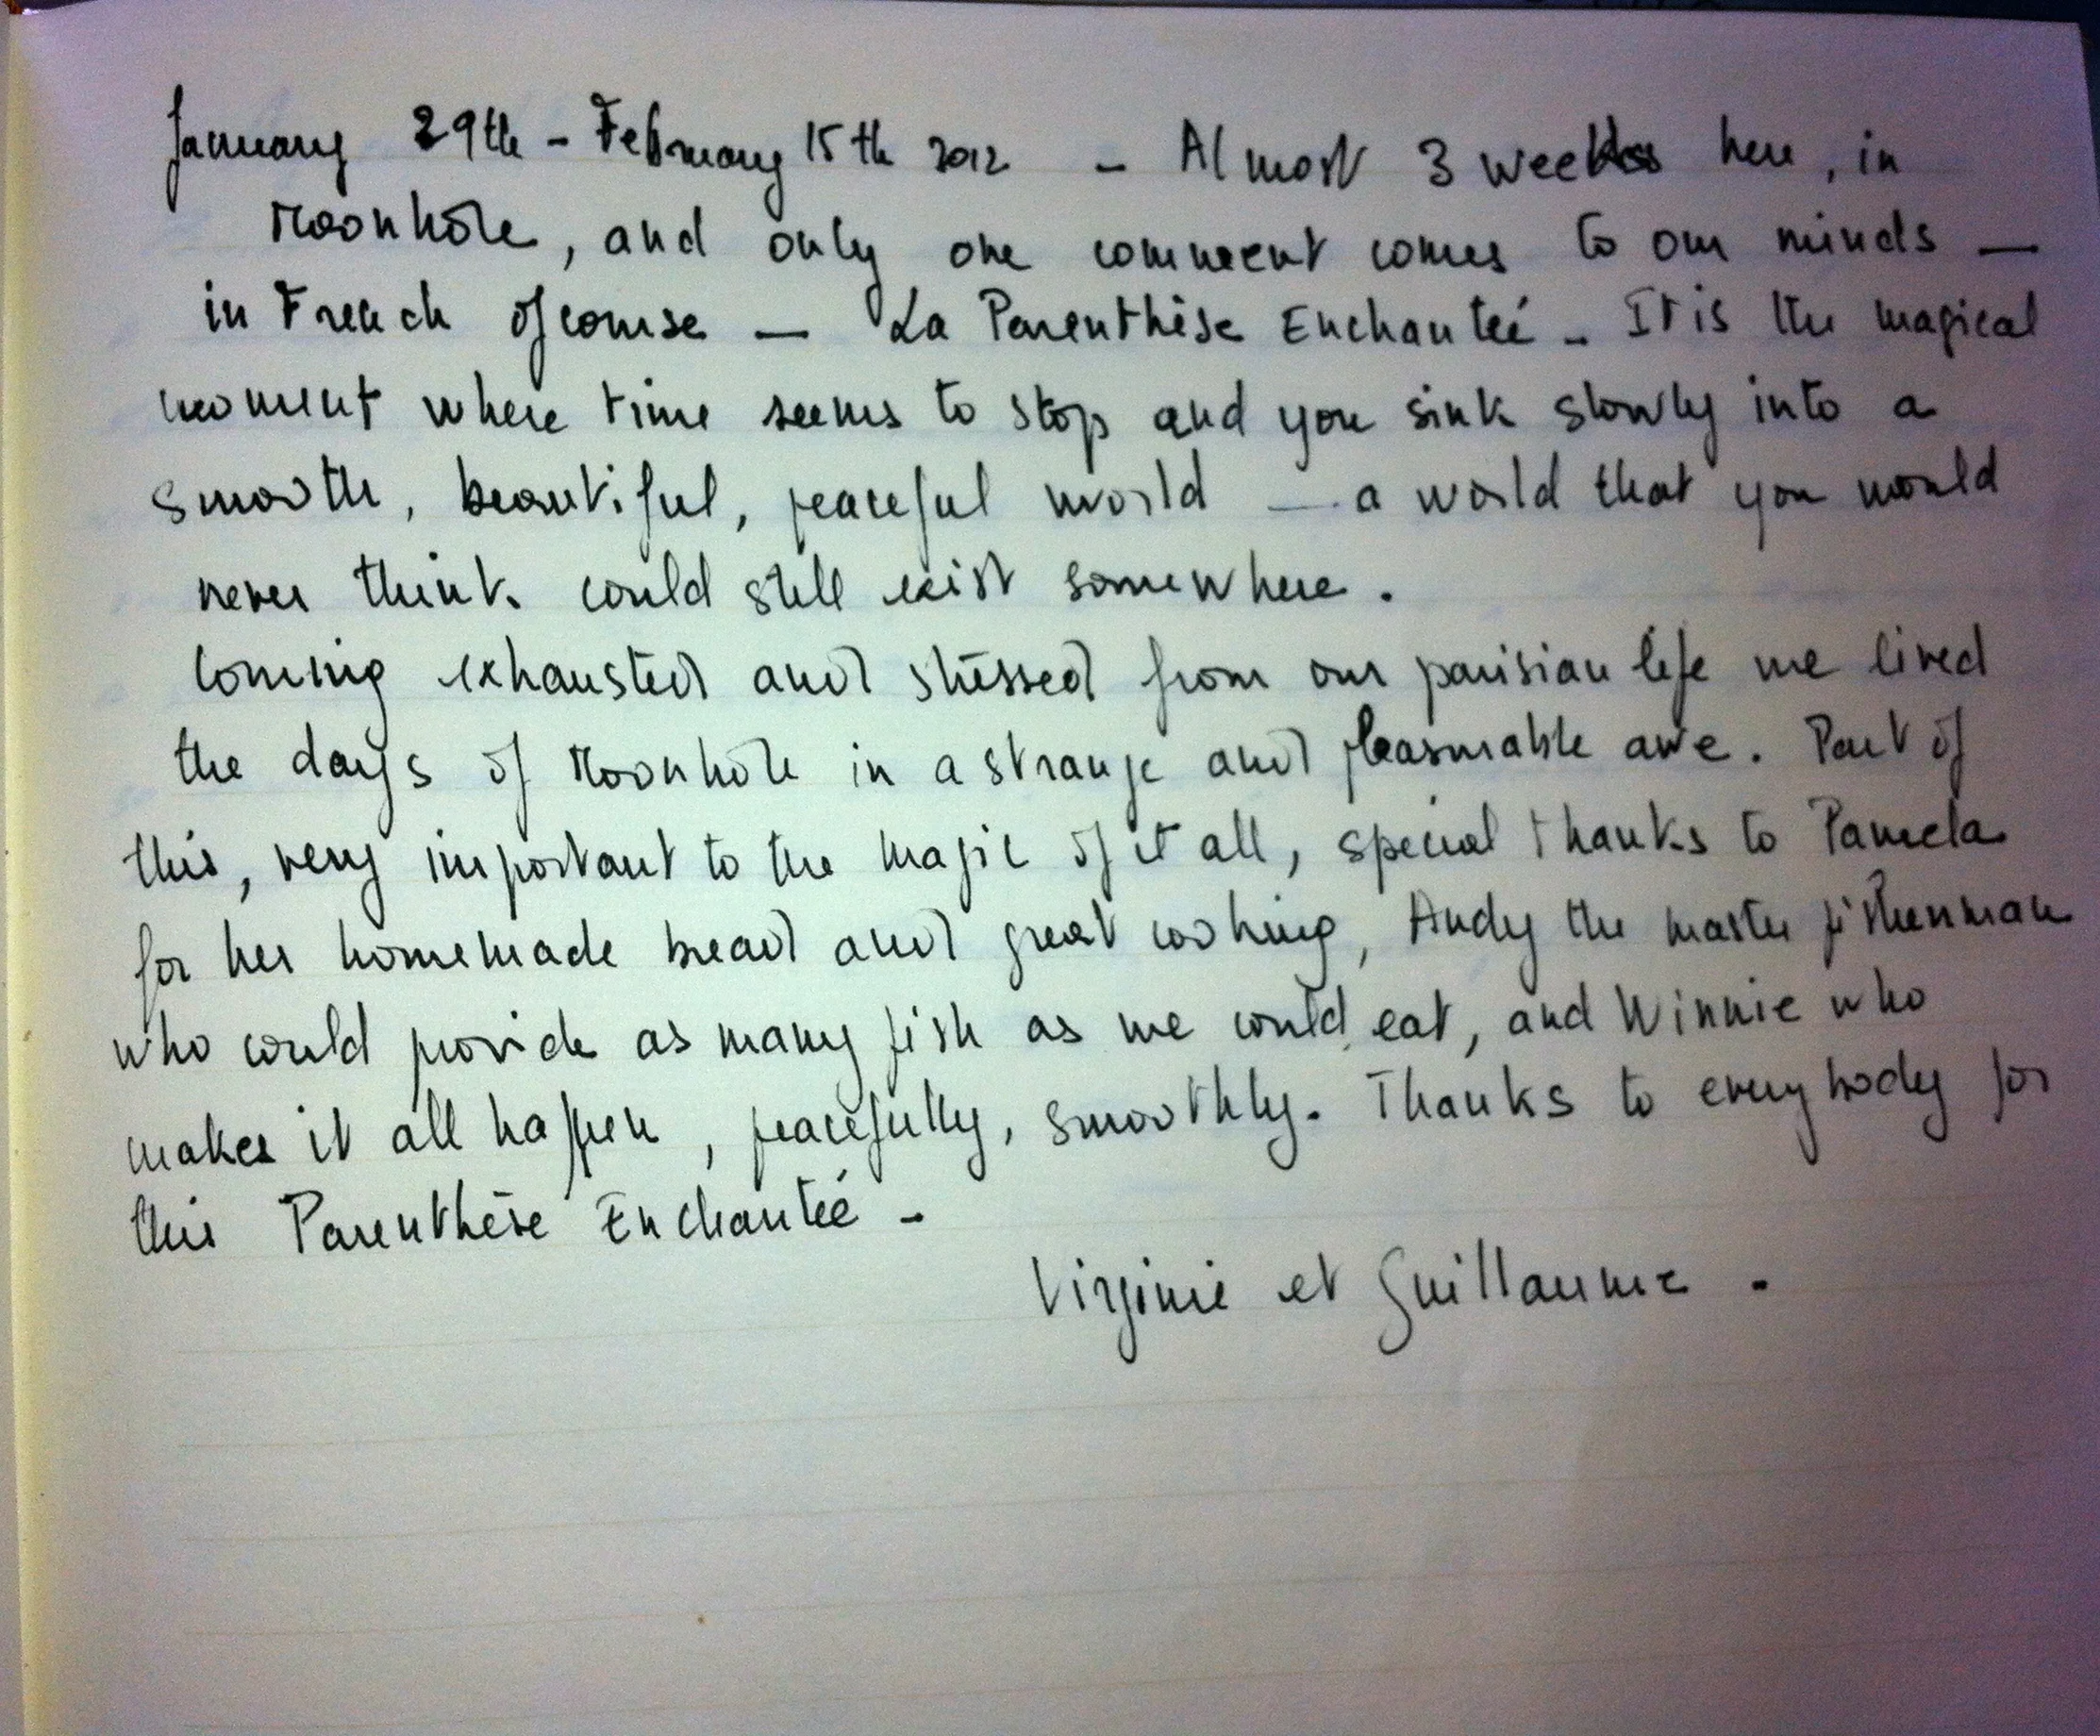 January 29th - February 15th 2012 - Almost 3 weeks here, in
Moonhole, and only one comment comes to our minds —
in French of course — La Parenthèse Enchantée - It is the magical
moment where time seems to stop and you sink slowly into a
smooth, beautiful, peaceful world — a world that you would
never think could still exist somewhere.
Coming exhausted and stressed from our parisian life we lived
the days of Moonhole in a strange and pleasurable awe. Part of
this, very important to the magic of it all, special thanks to Pamela
for her homemade bread and great cooking, Andy the master fisherman
who could provide as many fish as we could eat, and Winnie who
makes it all happen, peacefully, smoothly. Thanks to everybody for
this Parenthèse Enchantée -
Virginie et Guillaume.